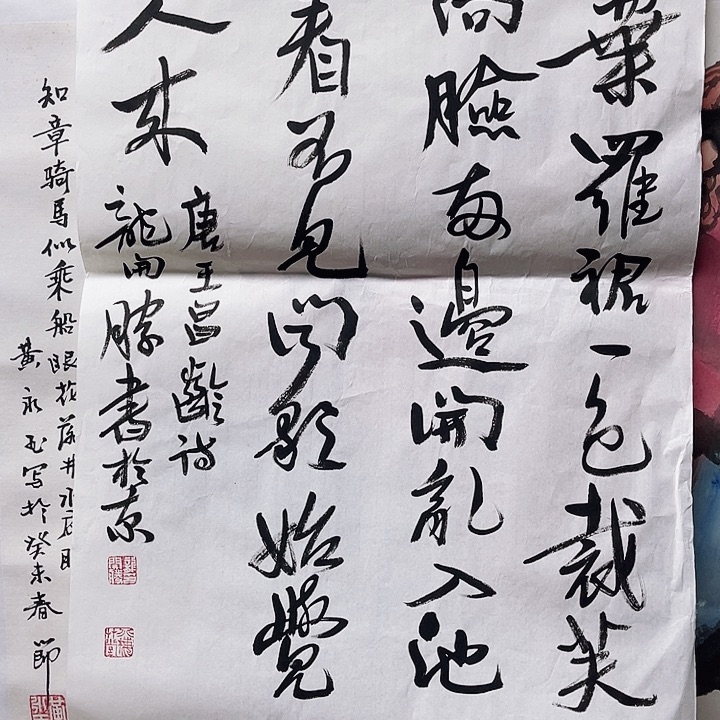 葉羅裙一色裁芙
向臉两邊開亂入池
看不見聞歌始覺
人来
唐王昌齡诗
龍開勝書於京
知章骑馬似乘船眼花落井水底眠
黄永玉写於癸未春節